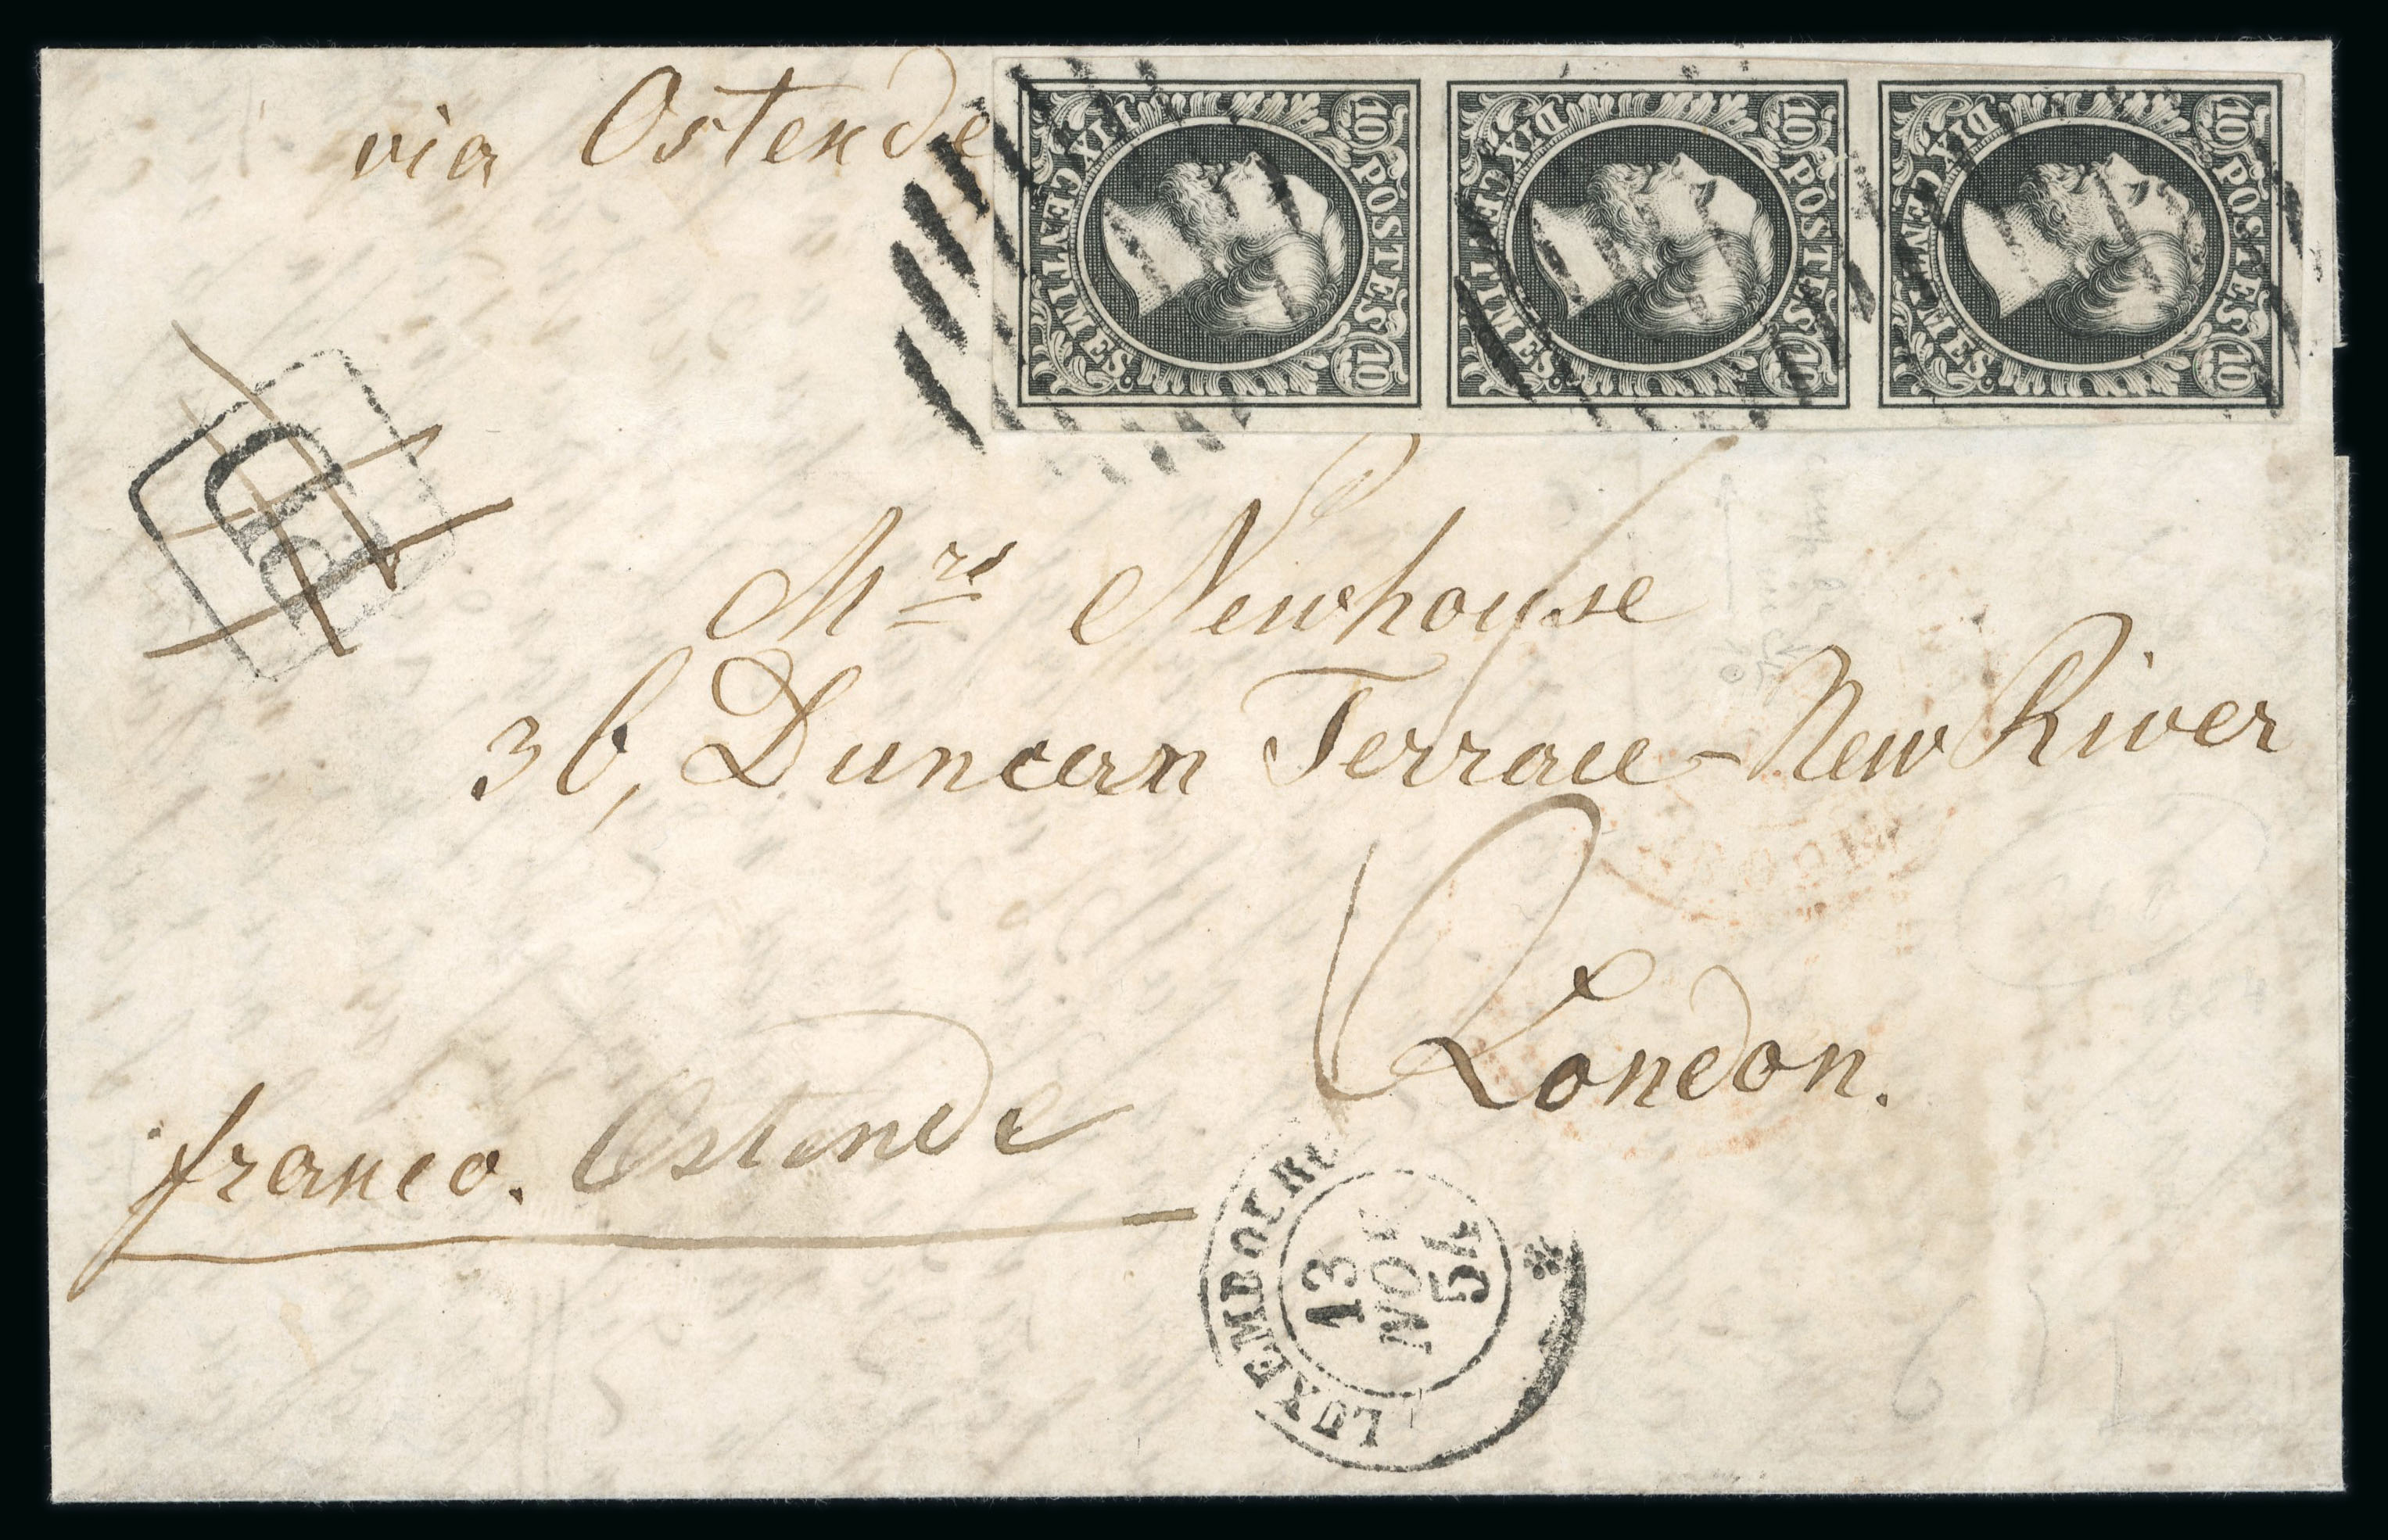 via Ostende
10 POSTES 10
DIX CENTIMES.
10 POSTES 10
DIX CENTIMES.
10 POSTES 10
DIX CENTIMES.
PD
Mrs Newhouse
36, Duncan Terrace - New River
London.
franco. Ostende
LUXEMBOURG
13
NOV
54